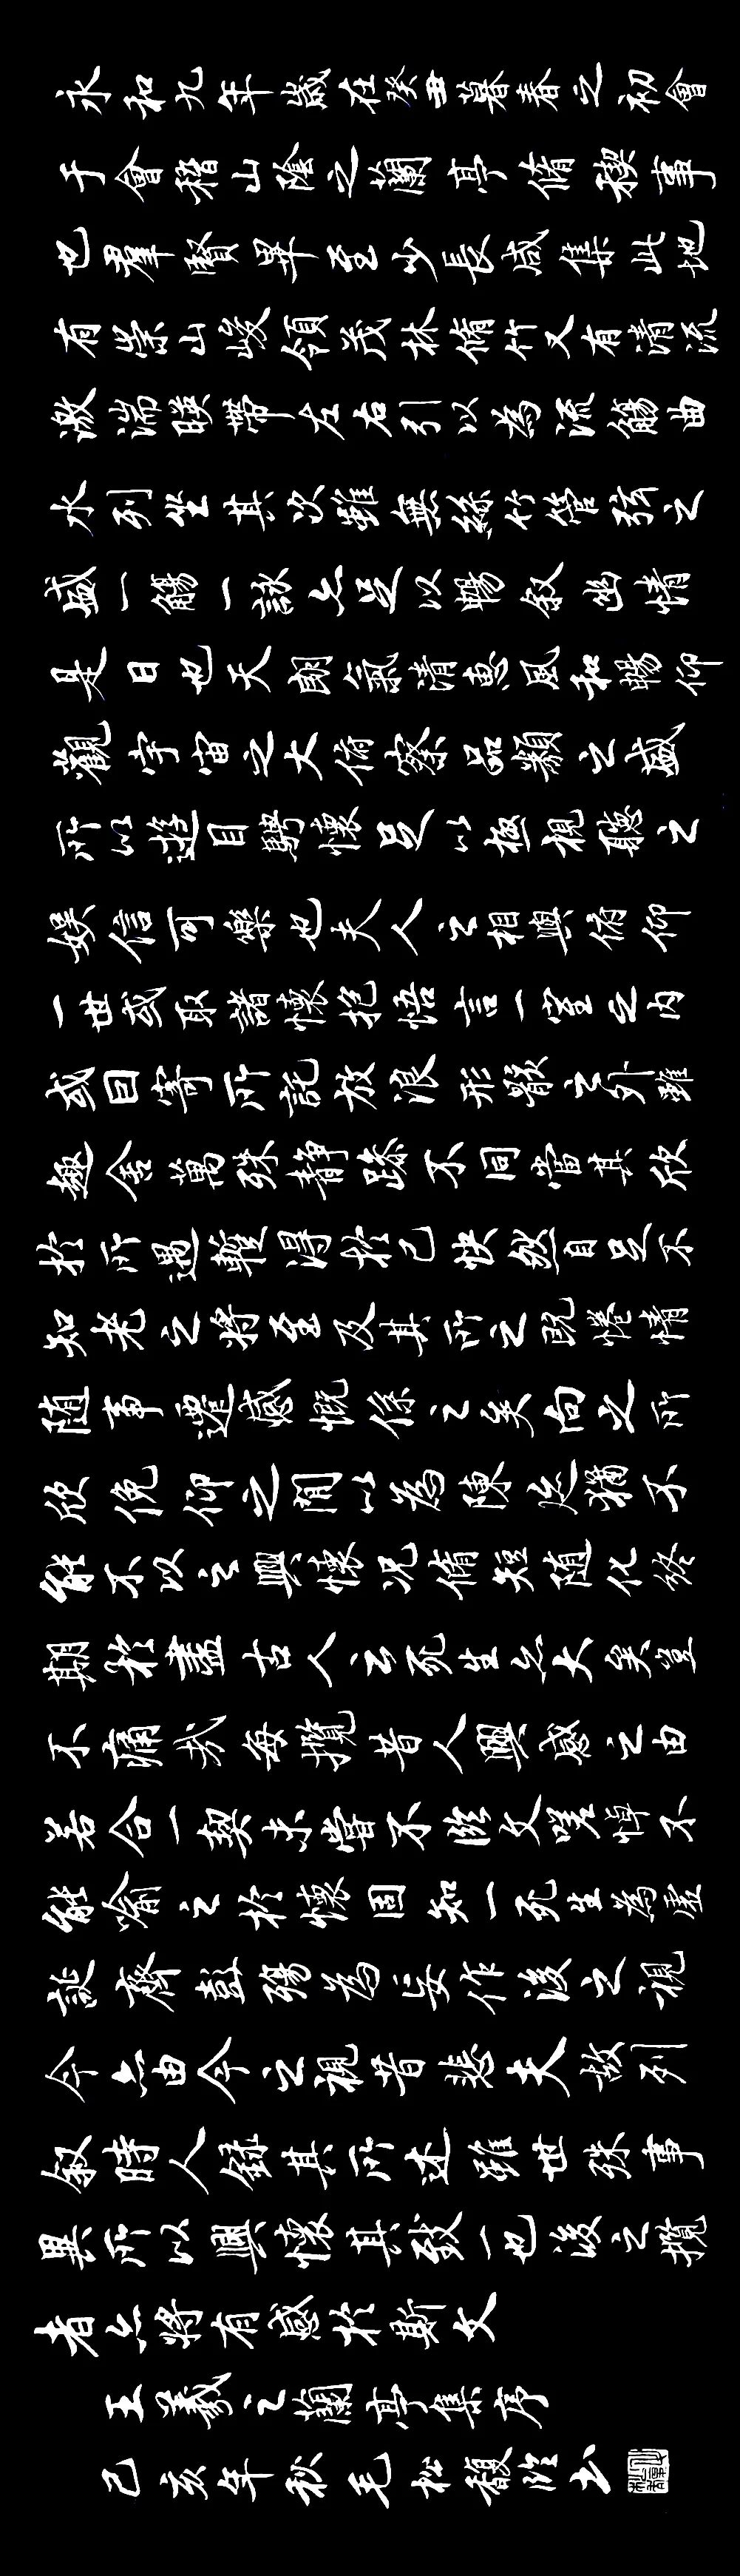 永和九年歲在癸丑暮春之初會
于會稽山陰之蘭亭脩稧事
也羣賢畢至少長咸集此地
有崇山峻領茂林脩竹又有清流
激湍暎帶左右引以為流觴曲
水列坐其次雖無絲竹管弦之
盛一觴一詠亦足以暢敘幽情
是日也天朗氣清惠風和暢仰
觀宇宙之大俯察品類之盛
所以遊目騁懷足以極視聽之
娛信可樂也夫人之相與俯仰
一世或取諸懷抱悟言一室之內
或因寄所託放浪形骸之外雖
趣舍萬殊靜躁不同當其欣
於所遇暫得於己快然自足不
知老之將至及其所之既惓情
隨事遷感慨係之矣向之所
欣俛仰之閒以為陳迹猶不
能不以之興懷況脩短隨化終
期於盡古人云死生亦大矣豈
不痛哉每攬昔人興感之由
若合一契未嘗不臨文嗟悼不
能喻之於懷固知一死生為虛
誕齊彭殤為妄作後之視
今亦由今之視昔悲夫故列
敘時人錄其所述雖世殊事
異所以興懷其致一也後之攬
者亦將有感於斯文
王羲之蘭亭集序
己亥年秋毛松馥臨書